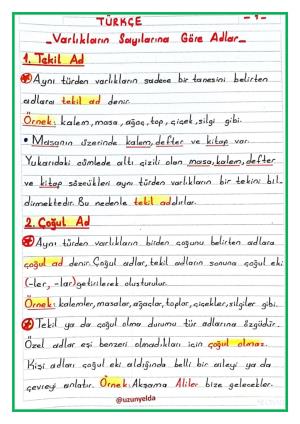 TÜRKÇE
- 1 -
_Varlıkların Sayılarına Göre Adlar_
1. Tekil Ad
Aynı türden varlıkların sadece bir tanesini belirten
adlara tekil ad denir.
Örnek: kalem, masa, ağaç, top, çiçek, silgi gibi.
• Masanın üzerinde kalem, defter ve kitap var.
Yukarıdaki cümlede altı çizili olan masa, kalem, defter
ve kitap sözcükleri aynı türden varlıkların bir tekini bil-
dirmektedir. Bu nedenle tekil addırlar.
2. Çoğul Ad
Aynı türden varlıkların birden çoğunu belirten adlara
çoğul ad denir. Çoğul adlar, tekil adların sonuna çoğul eki
(-ler, -lar) getirilerek oluşturulur.
Örnek: kalemler, masalar, ağaçlar, toplar, çiçekler, silgiler gibi.
Tekil ya da çoğul olma durumu tür adlarına özgüdür.
Özel adlar eşi benzeri olmadıkları için çoğul olmaz.
Kişi adları çoğul eki aldığında belli bir aileyi ya da
çevreyi anlatır. Örnek: Akşama Aliler bize gelecekler.
@uzunyelda